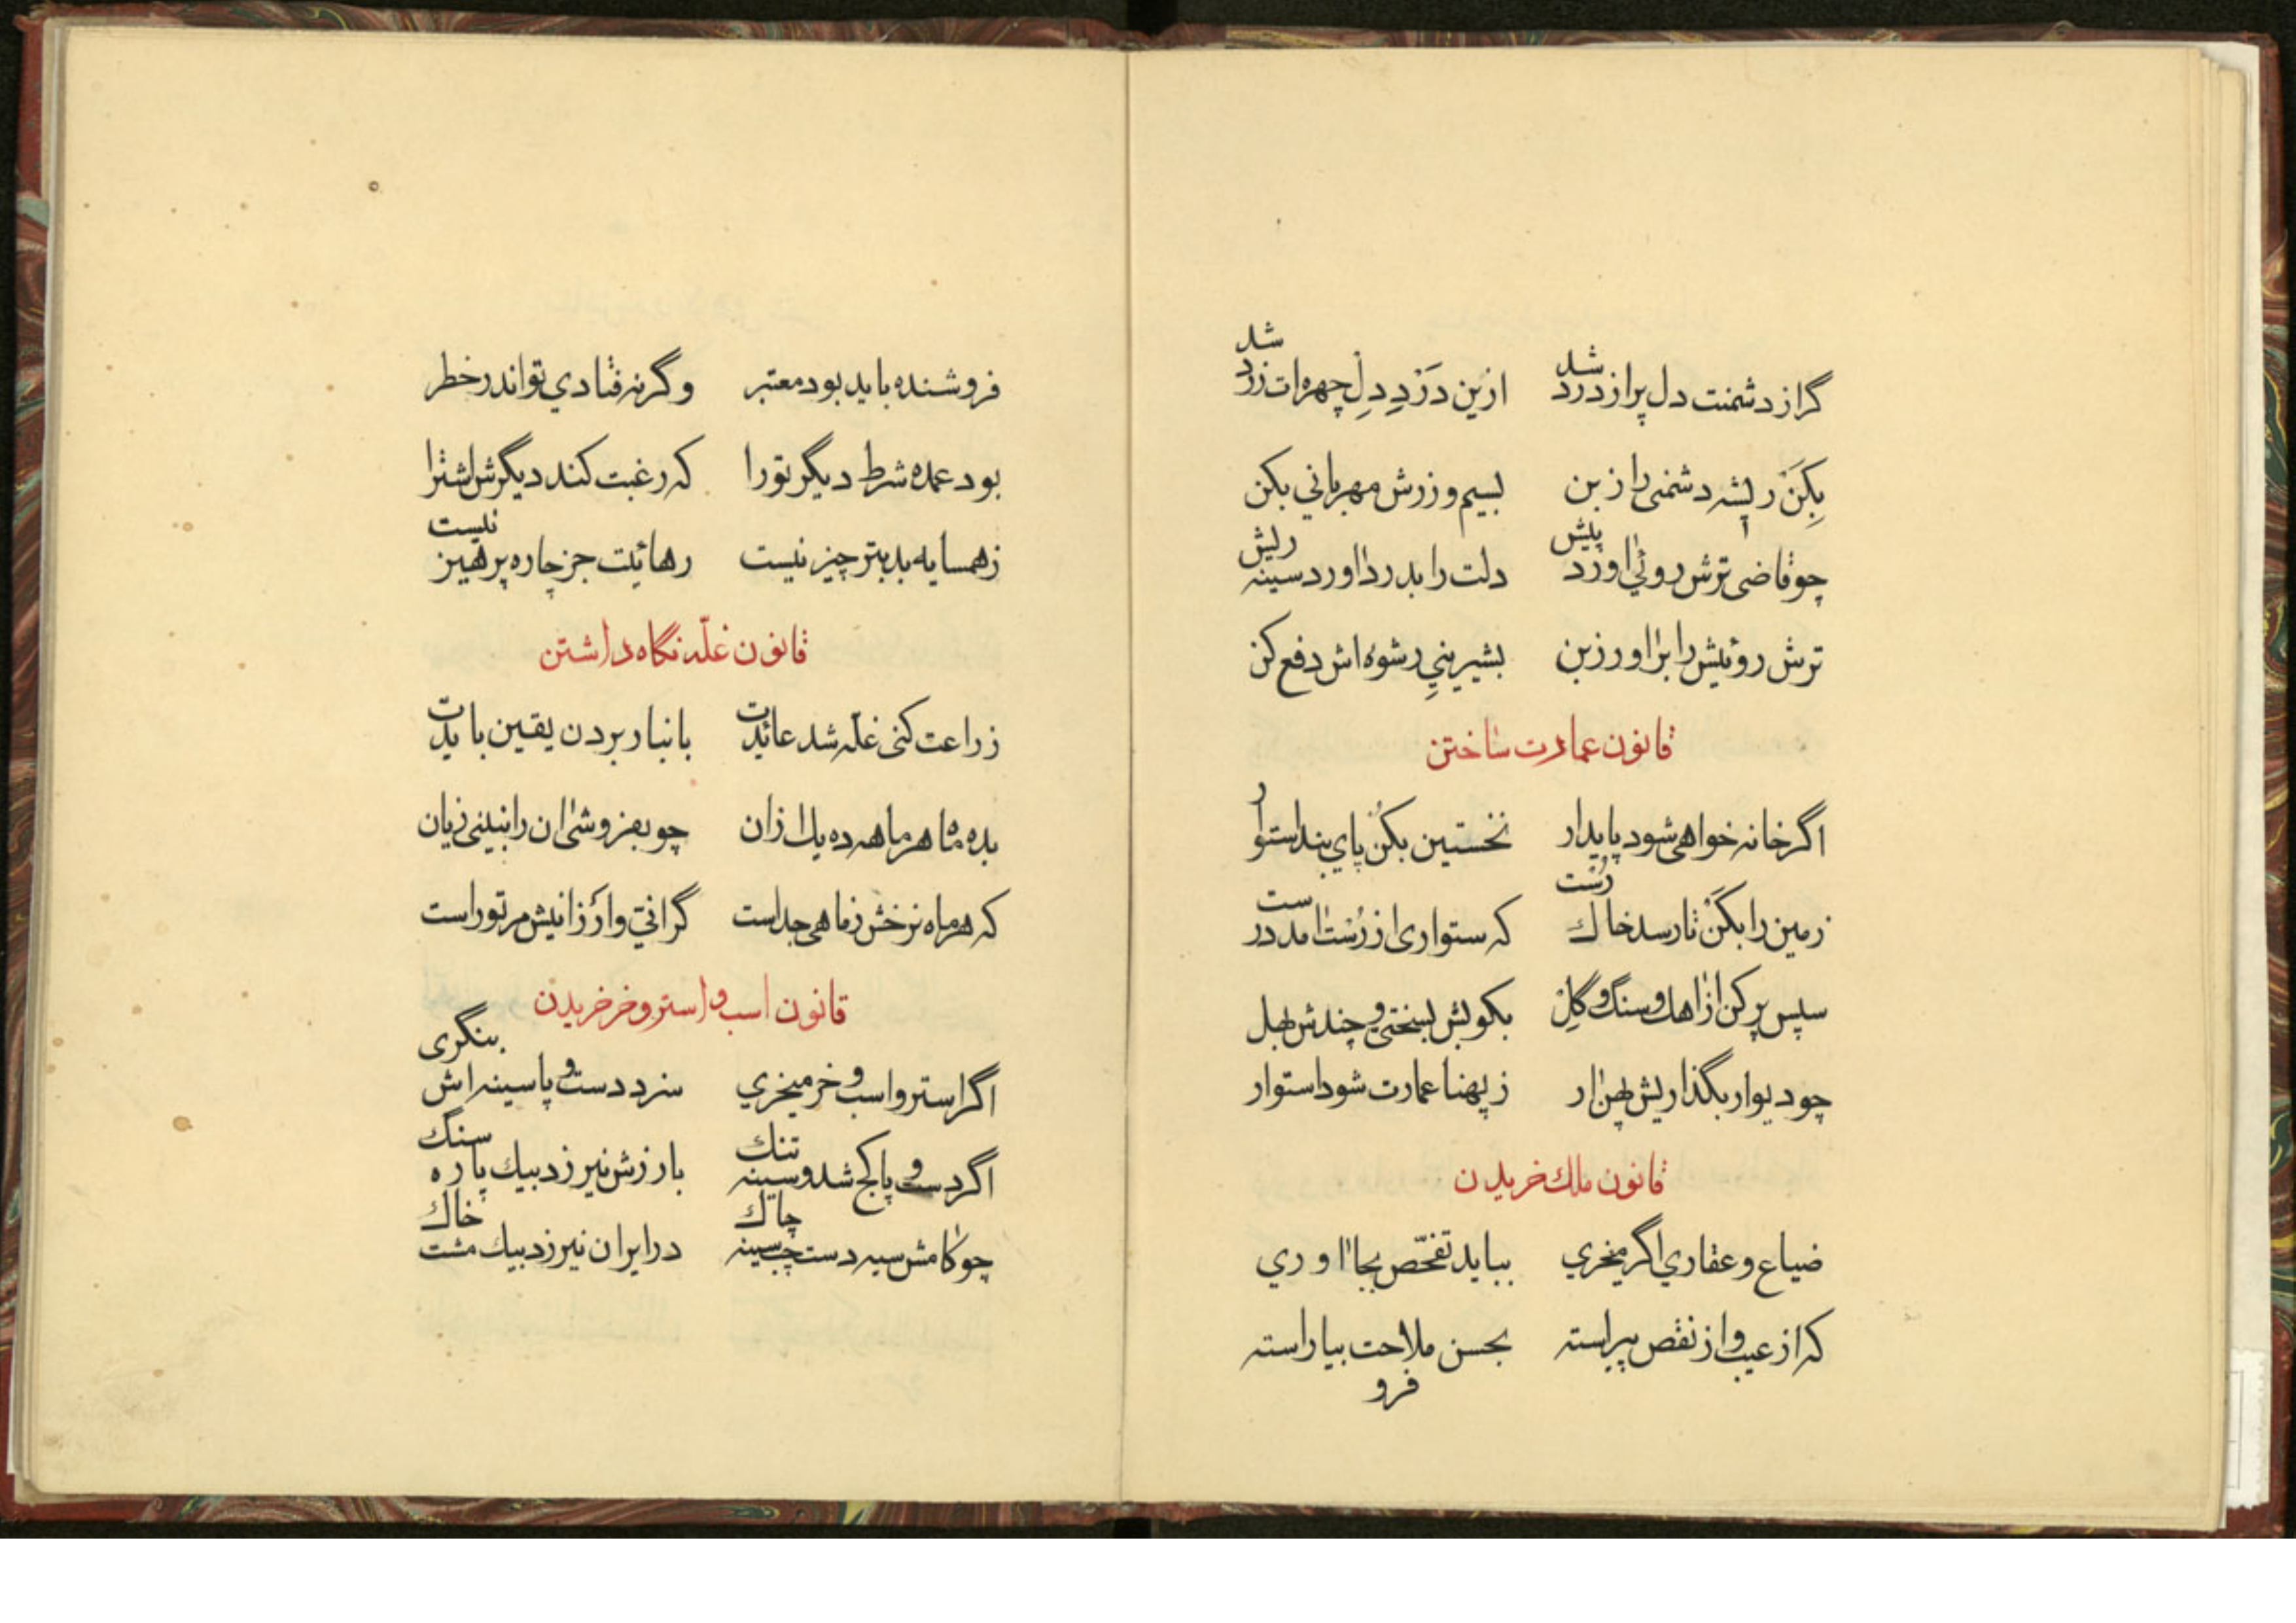 گر از دشمنت دل پر از درد شد ازین دَرْدِ دلِ چهره‌ات زرد شد
بِکَنْ ریشه دشمنی را ز بن بسیم و زرش مهربانی بکن
چو قاضی ترش روئی اورد پیش دلت را بدرد اورد سینه ریش
ترش روئیش را برا اور ز بن بشیرینیِ رشوه اش دفع کن
قانون عمارت ساختن
اگر خانه خواهی شود پایدار نخستین بکن پای بند استوار
زمین را بکَنْ تا رسد خاك رُست که ستواری از رُست امد درست
سپس پر کن از اهك و سنگ و گِل بکوبش بسختی و چندش بهل
چو دیوار بگذاریش پهن ار ز پهنا عمارت شود استوار
قانون ملك خریدن
ضیاع و عقاري اگر میخري بباید تفحّص بجا اوري
که از عیب و از نقص پیراسته بحسن ملاحت بیاراسته
فرو
فروشنده باید بود معتبر و گرنه فتادي تو اندر خطر
بود عمده شرط دیگر تو را که رغبت کند دیگرش اشترا
ز همسایه بد بتر چیز نیست رهائیت جز چاره پرهیز نیست
قانون غلّه نگاه داشتن
زراعت کنی غلّه شد عائدت بانبار بردن یقین بایدت
بده ماه هر ماهه ده یك از ان چو بفروشی ان را نبینی زیان
که هر ماه نرخش ز ماهی جداست گرانیّ و ارزانیش مر تو راست
قانون اسب و استر و خر خریدن
اگر استر و اسب و خر میخري سزد دست و پا سینه اش بنگری
اگر دست و پا کج شد و سینه تنك بارزش نیرزد بیك پاره سنگ
چو کامش سیه دست چپ سینه چاك در ایران نیرزد بیك مشت خاك